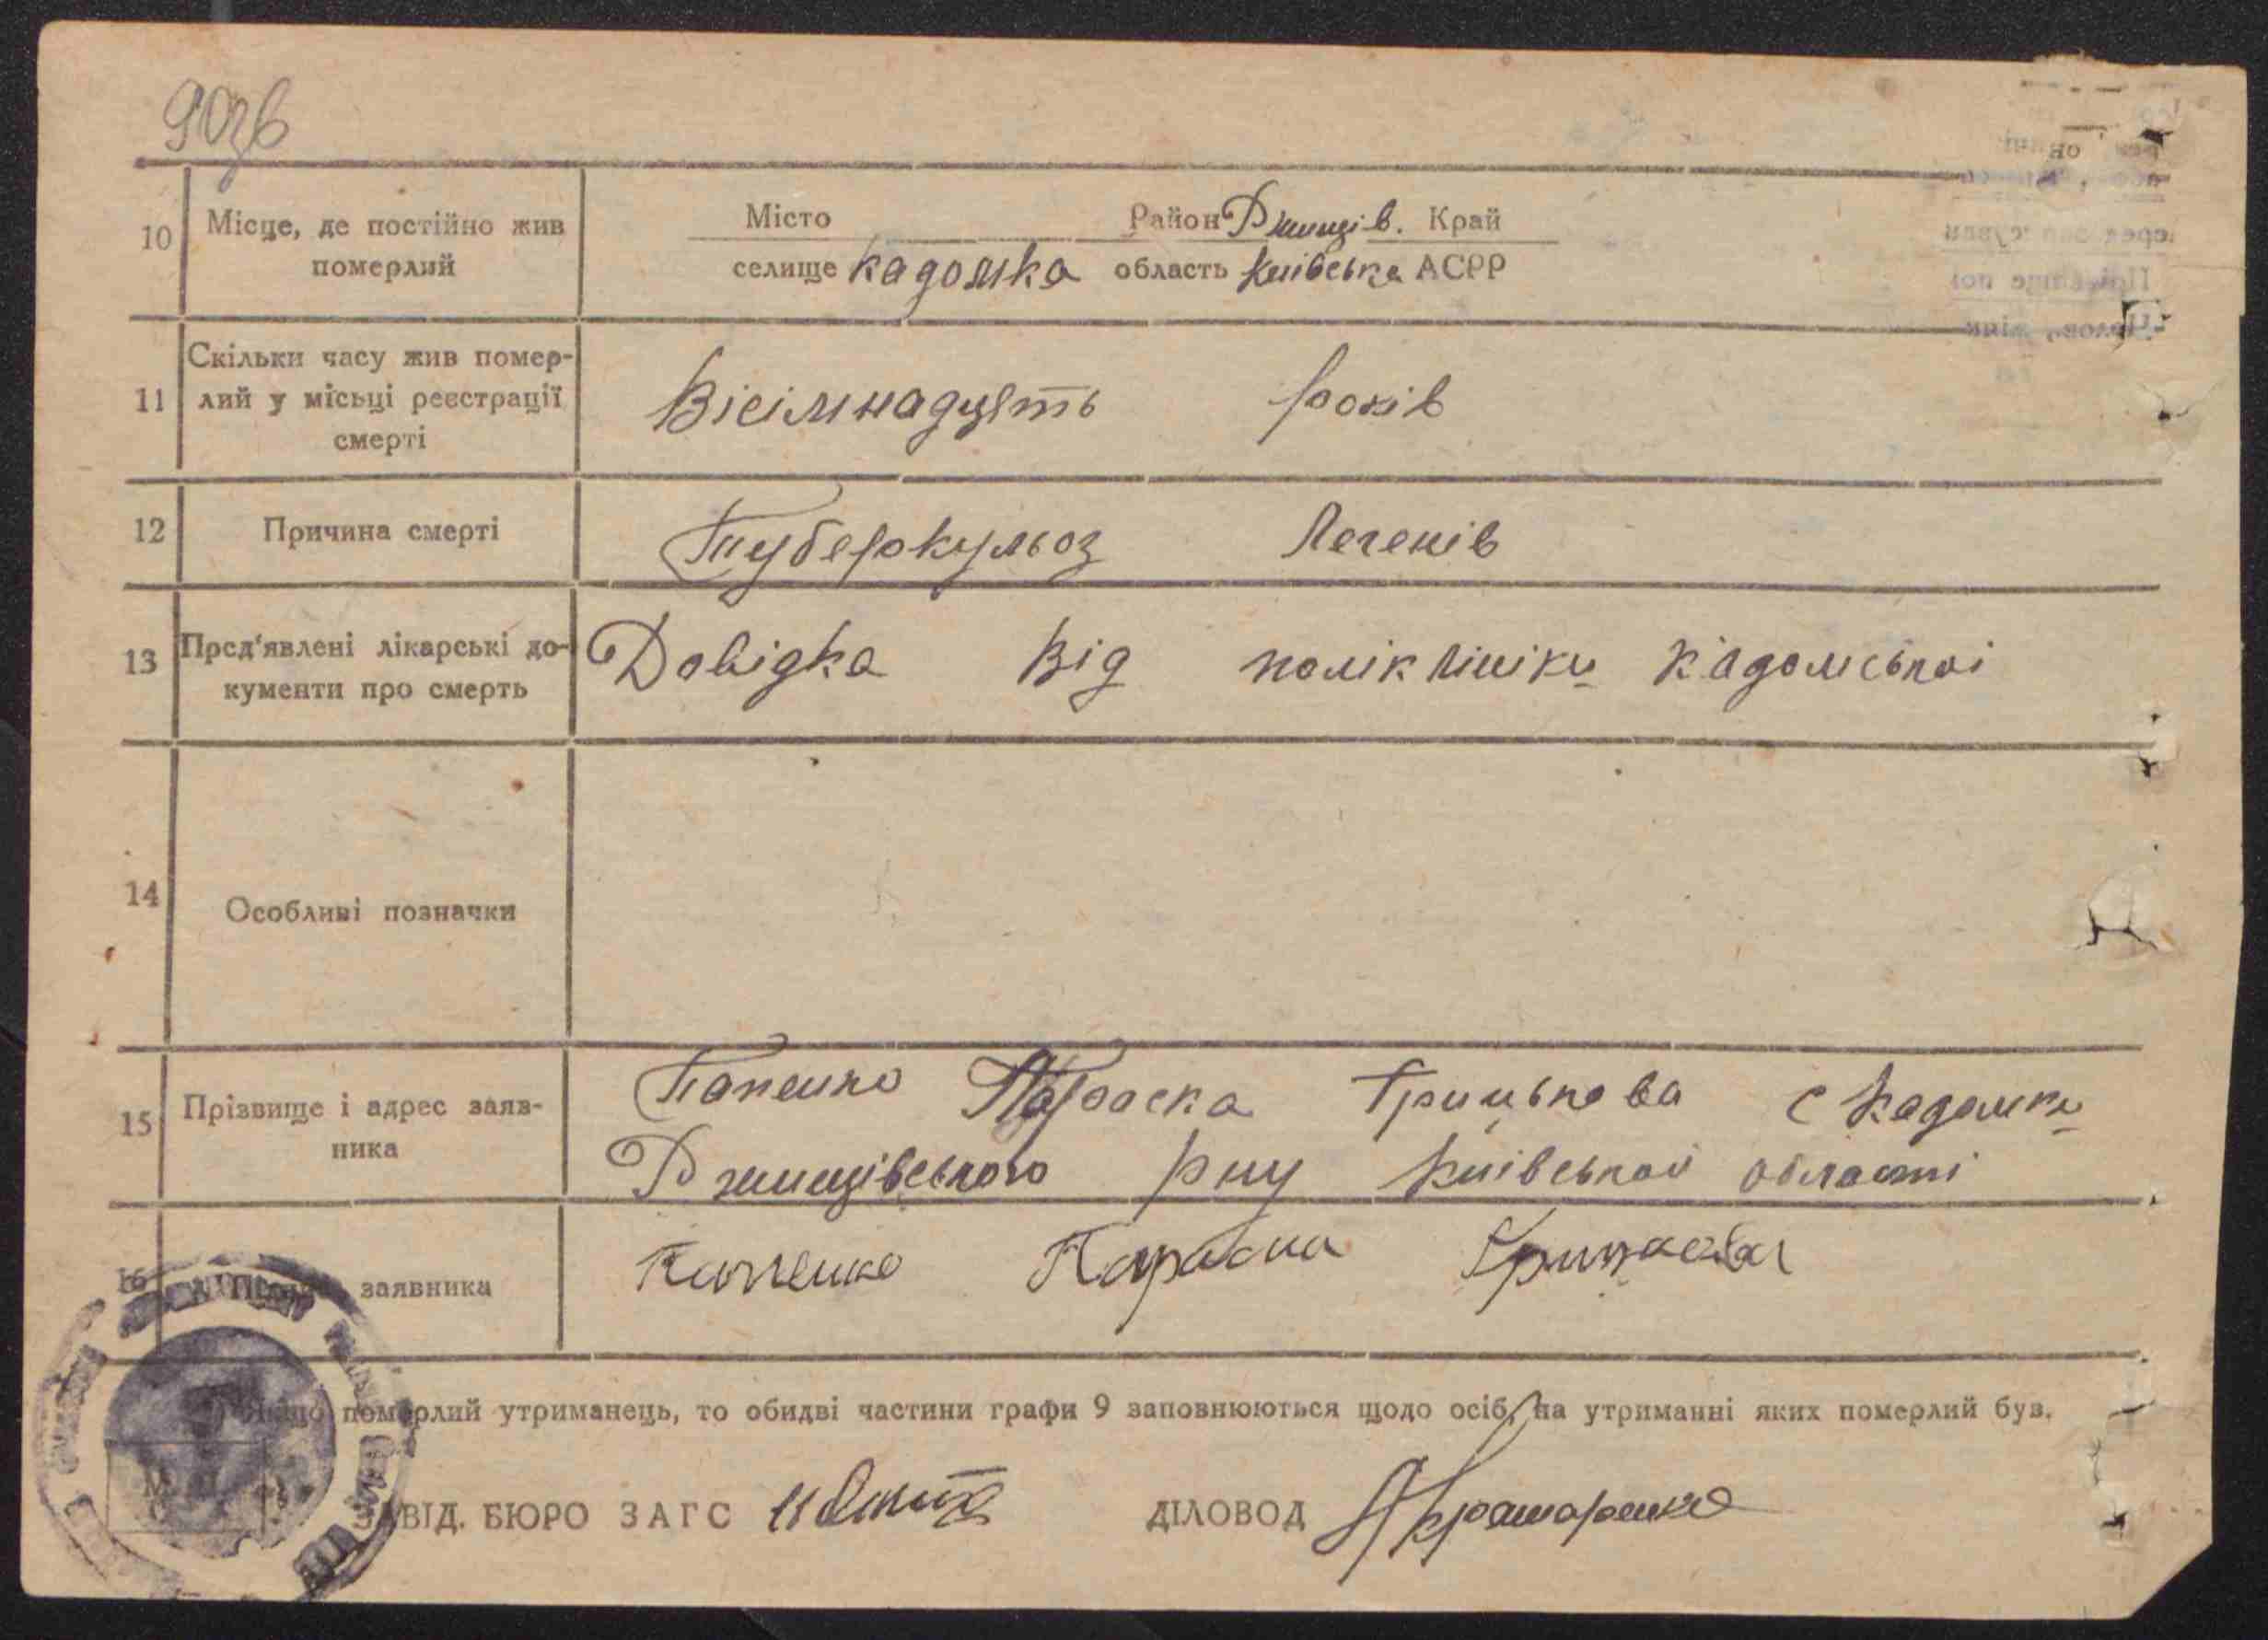 90зв
10 Місце, де постійно жив померлий
Місто Район Ржищів. Край
селище Кадомка область Київська АСРР
11 Скільки часу жив помер-
лий у місьці реєстрації
смерті
Вісімнадцять років
12 Причина смерті
Туберкульоз Легенів
13 Пред'явлені лікарські до-
кументи про смерть
Довідка від поліклініки Кадомської
14 Особливі позначки
15 Прізвище і адрес заяв-
ника
Папенко Параска Грицькова с Кадомки
Ржищівського р-ну Київської області
16 заявника
Папенко Параска Грицкова
Якщо померлий утриманець, то обидві частини графи 9 заповнюються щодо осіб, на утриманні яких померлий був.
ЗАВІД. БЮРО ЗАГС
ДІЛОВОД